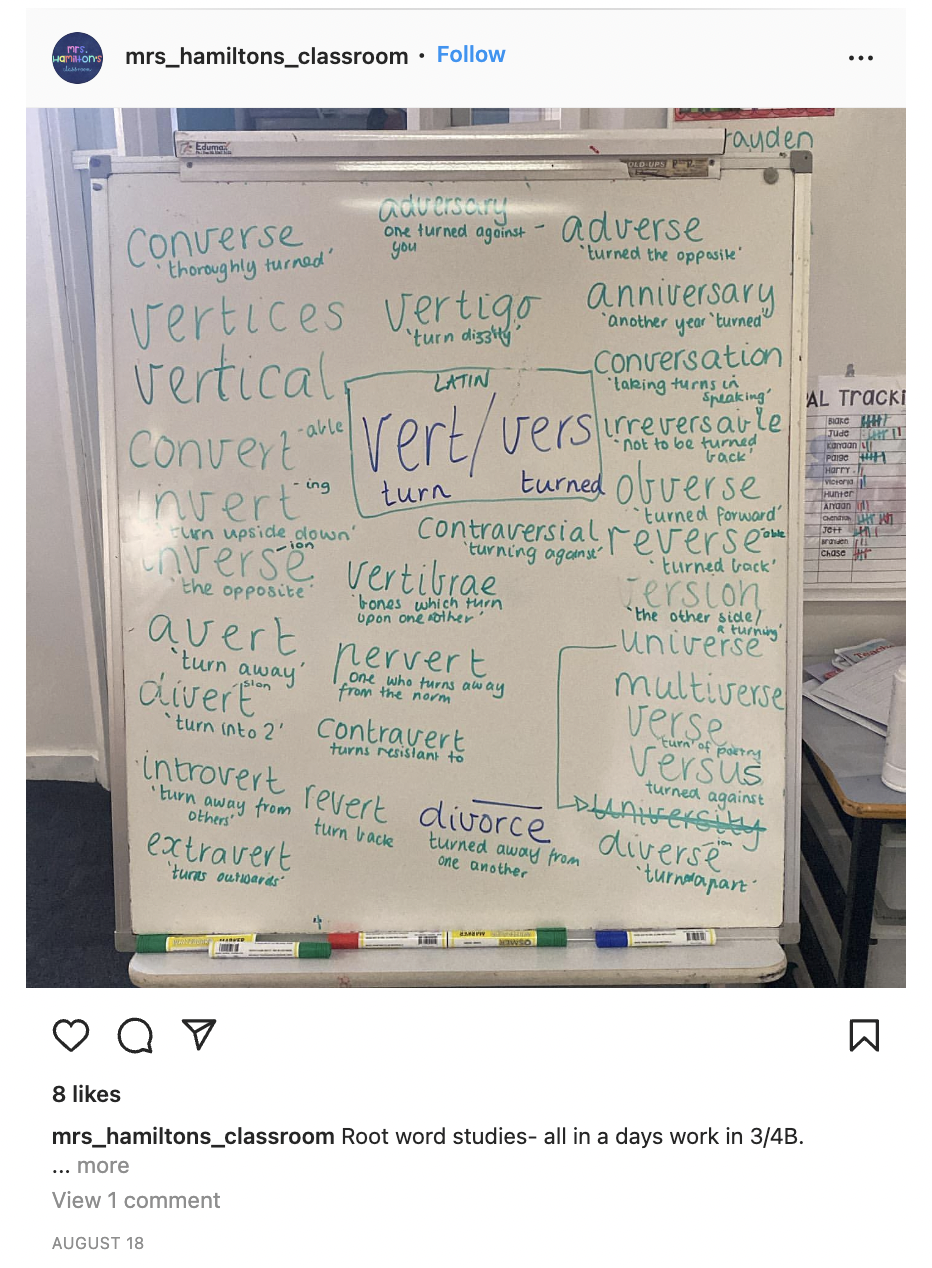 mrs.
Hamilton's
classroom
mrs_hamiltons_classroom • Follow
rayden
Edumax
OLD-UPS
converse
'thoroughly turned'
adversary
one turned against -
you
adverse
'turned the opposite'
vertices
vertigo
'turn dizzily'
anniversary
'another year 'turned'
vertical
conversation
'taking turns in
speaking'
LATIN
vert/vers
turn turned
convert -able
irreversable
'not to be turned
back'
invert -ing
'turn upside down'
obverse
'turned forward'
inverse -ion
'the opposite'
contraversial
'turning against'
reverse able
'turned back'
vertibrae
'bones which turn
upon one another'
version
'the other side/
a turning'
avert
'turn away'
pervert
one who turns away
from the norm
universe
multiverse
divert sion
'turn into 2'
contravert
turns resistant to
verse
'turn' of poetry
versus
turned against
introvert
'turn away from
others'
revert
turn back
divorce
turned away from
one another
university
extravert
'turns outwards'
diverse -ion
'turned apart'
AL Tracki
Blake
Jude
Kanyaan
Paige
Harry
Victoria
Hunter
Aryaan
Jett
Branden
Chase
OSMER
MARKER
8 likes
mrs_hamiltons_classroom Root word studies- all in a days work in 3/4B.
... more
View 1 comment
AUGUST 18